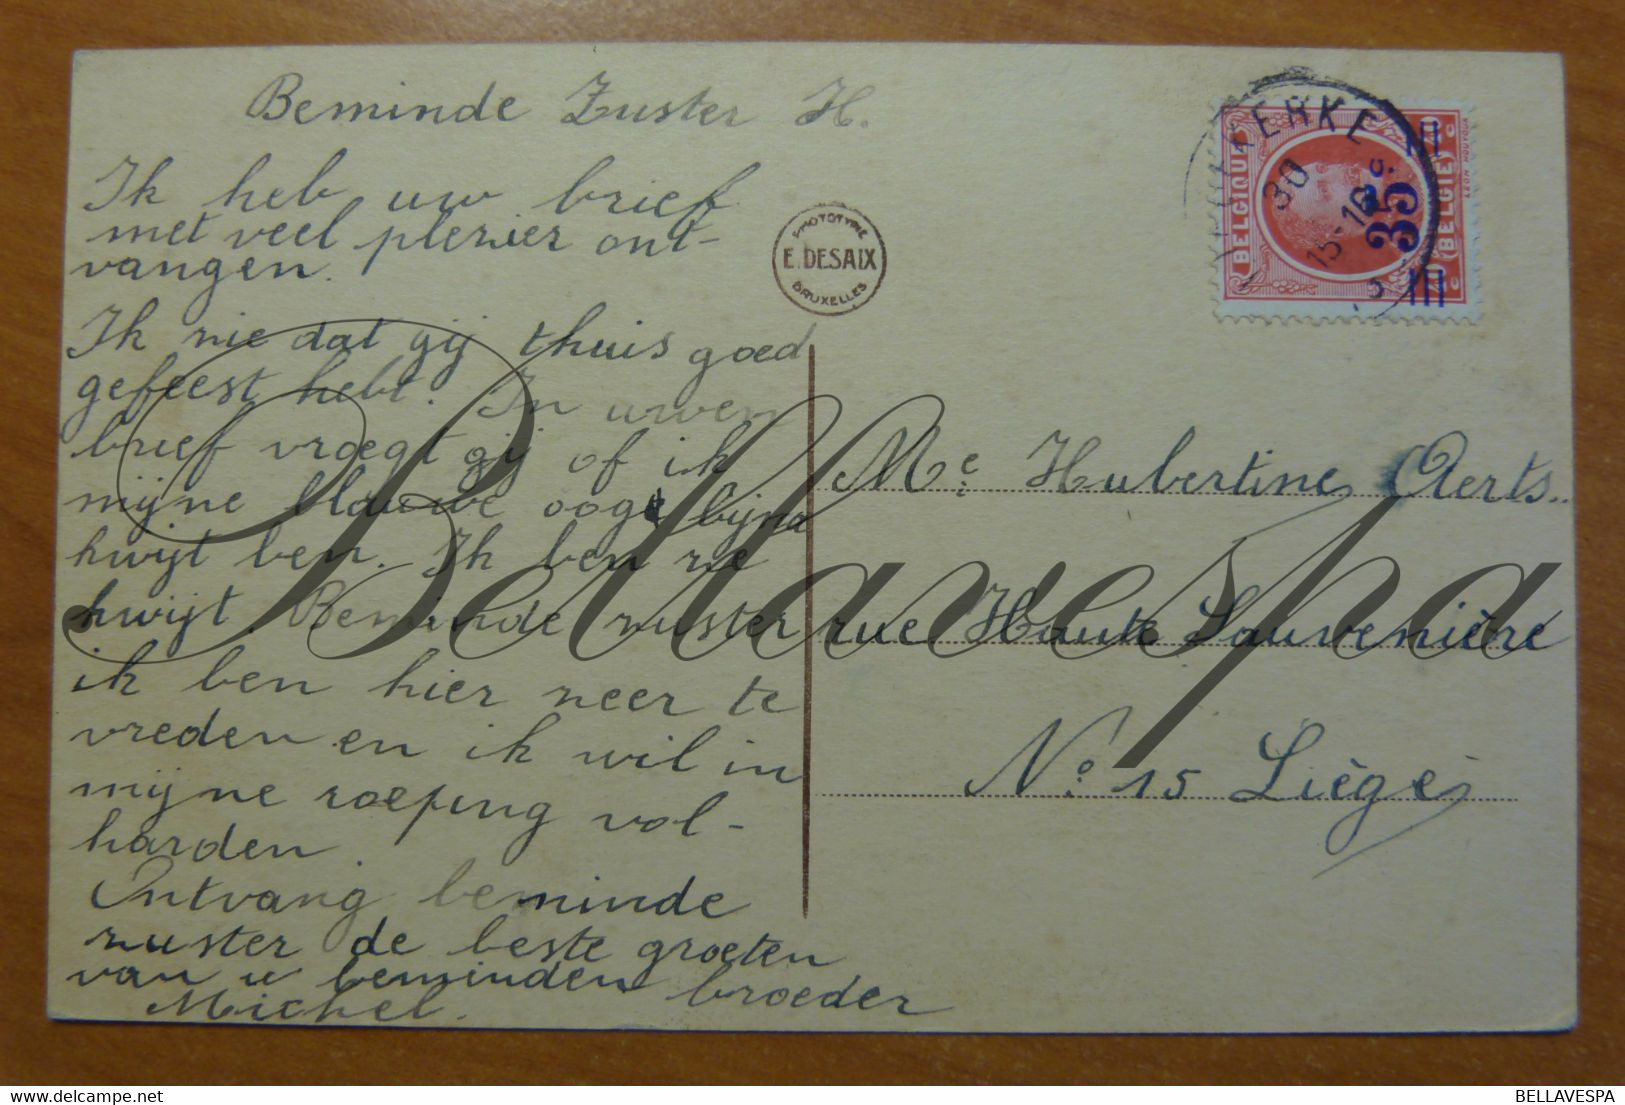 Beminde Zuster H.
Ik heb uw brief
met veel plezier ont-
vangen.
Ik zie dat gij thuis goed
gefeest hebt. In uwen
brief vroegt gij of ik
mijne blauwe oogen bijna
kwijt ben. Ik ben ze
kwijt. Beminde zuster
ik ben hier zeer te
vreden en ik wil in
mijne roeping vol-
harden.
Ontvang beminde
zuster de beste groeten
van u beminden broeder
Michel.
PHOTOTYPIE
E. DESAIX
BRUXELLES
KERKE
30
15-16
BELGIQUE
35 c.
(BELGIË)
Me. Hubertine Aerts.
rue Haute Sauvenière
No. 15 Liège
Bellavespa
BELLAVESPA